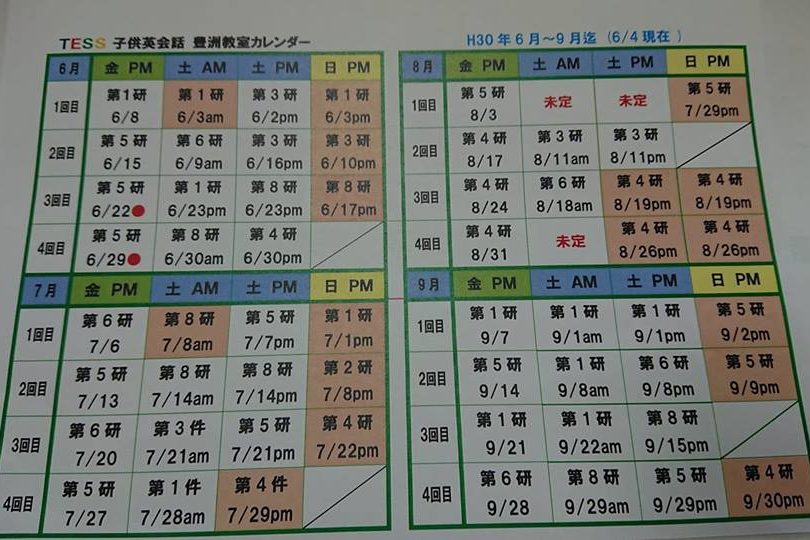 TESS 子供英会話 豊洲教室カレンダー H30年6月～9月迄 (6/4現在)
6月 金 PM 土 AM 土 PM 日 PM
1回目 第1研 第1研 第3研 第1研
6/8 6/3am 6/2pm 6/3pm
2回目 第5研 第6研 第3研 第3研
6/15 6/9am 6/16pm 6/10pm
3回目 第5研 第1研 第8研 第8研
6/22● 6/23pm 6/23pm 6/17pm
4回目 第5研 第8研 第4研
6/29● 6/30am 6/30pm
7月 金 PM 土 AM 土 PM 日 PM
1回目 第6研 第8研 第5研 第1研
7/6 7/8am 7/7pm 7/1pm
2回目 第5研 第8研 第8研 第2研
7/13 7/14am 7/14pm 7/8pm
3回目 第6研 第3件 第5研 第4研
7/20 7/21am 7/21pm 7/22pm
4回目 第5研 第1件 第4件
7/27 7/28am 7/29pm
8月 金 PM 土 AM 土 PM 日 PM
1回目 第5研 未定 未定 第5研
8/3 7/29pm
2回目 第4研 第3研 第3研
8/17 8/11am 8/11pm
3回目 第4研 第6研 第4研 第4研
8/24 8/18am 8/19pm 8/19pm
4回目 第4研 未定 第4研 第4研
8/31 8/26pm 8/26pm
9月 金 PM 土 AM 土 PM 日 PM
1回目 第1研 第1研 第1研 第5研
9/7 9/1am 9/1pm 9/2pm
2回目 第5研 第1研 第6研 第5研
9/14 9/8am 9/8pm 9/9pm
3回目 第1研 第1研 第8研
9/21 9/22am 9/15pm
4回目 第6研 第8研 第5研 第4研
9/28 9/29am 9/29pm 9/30pm